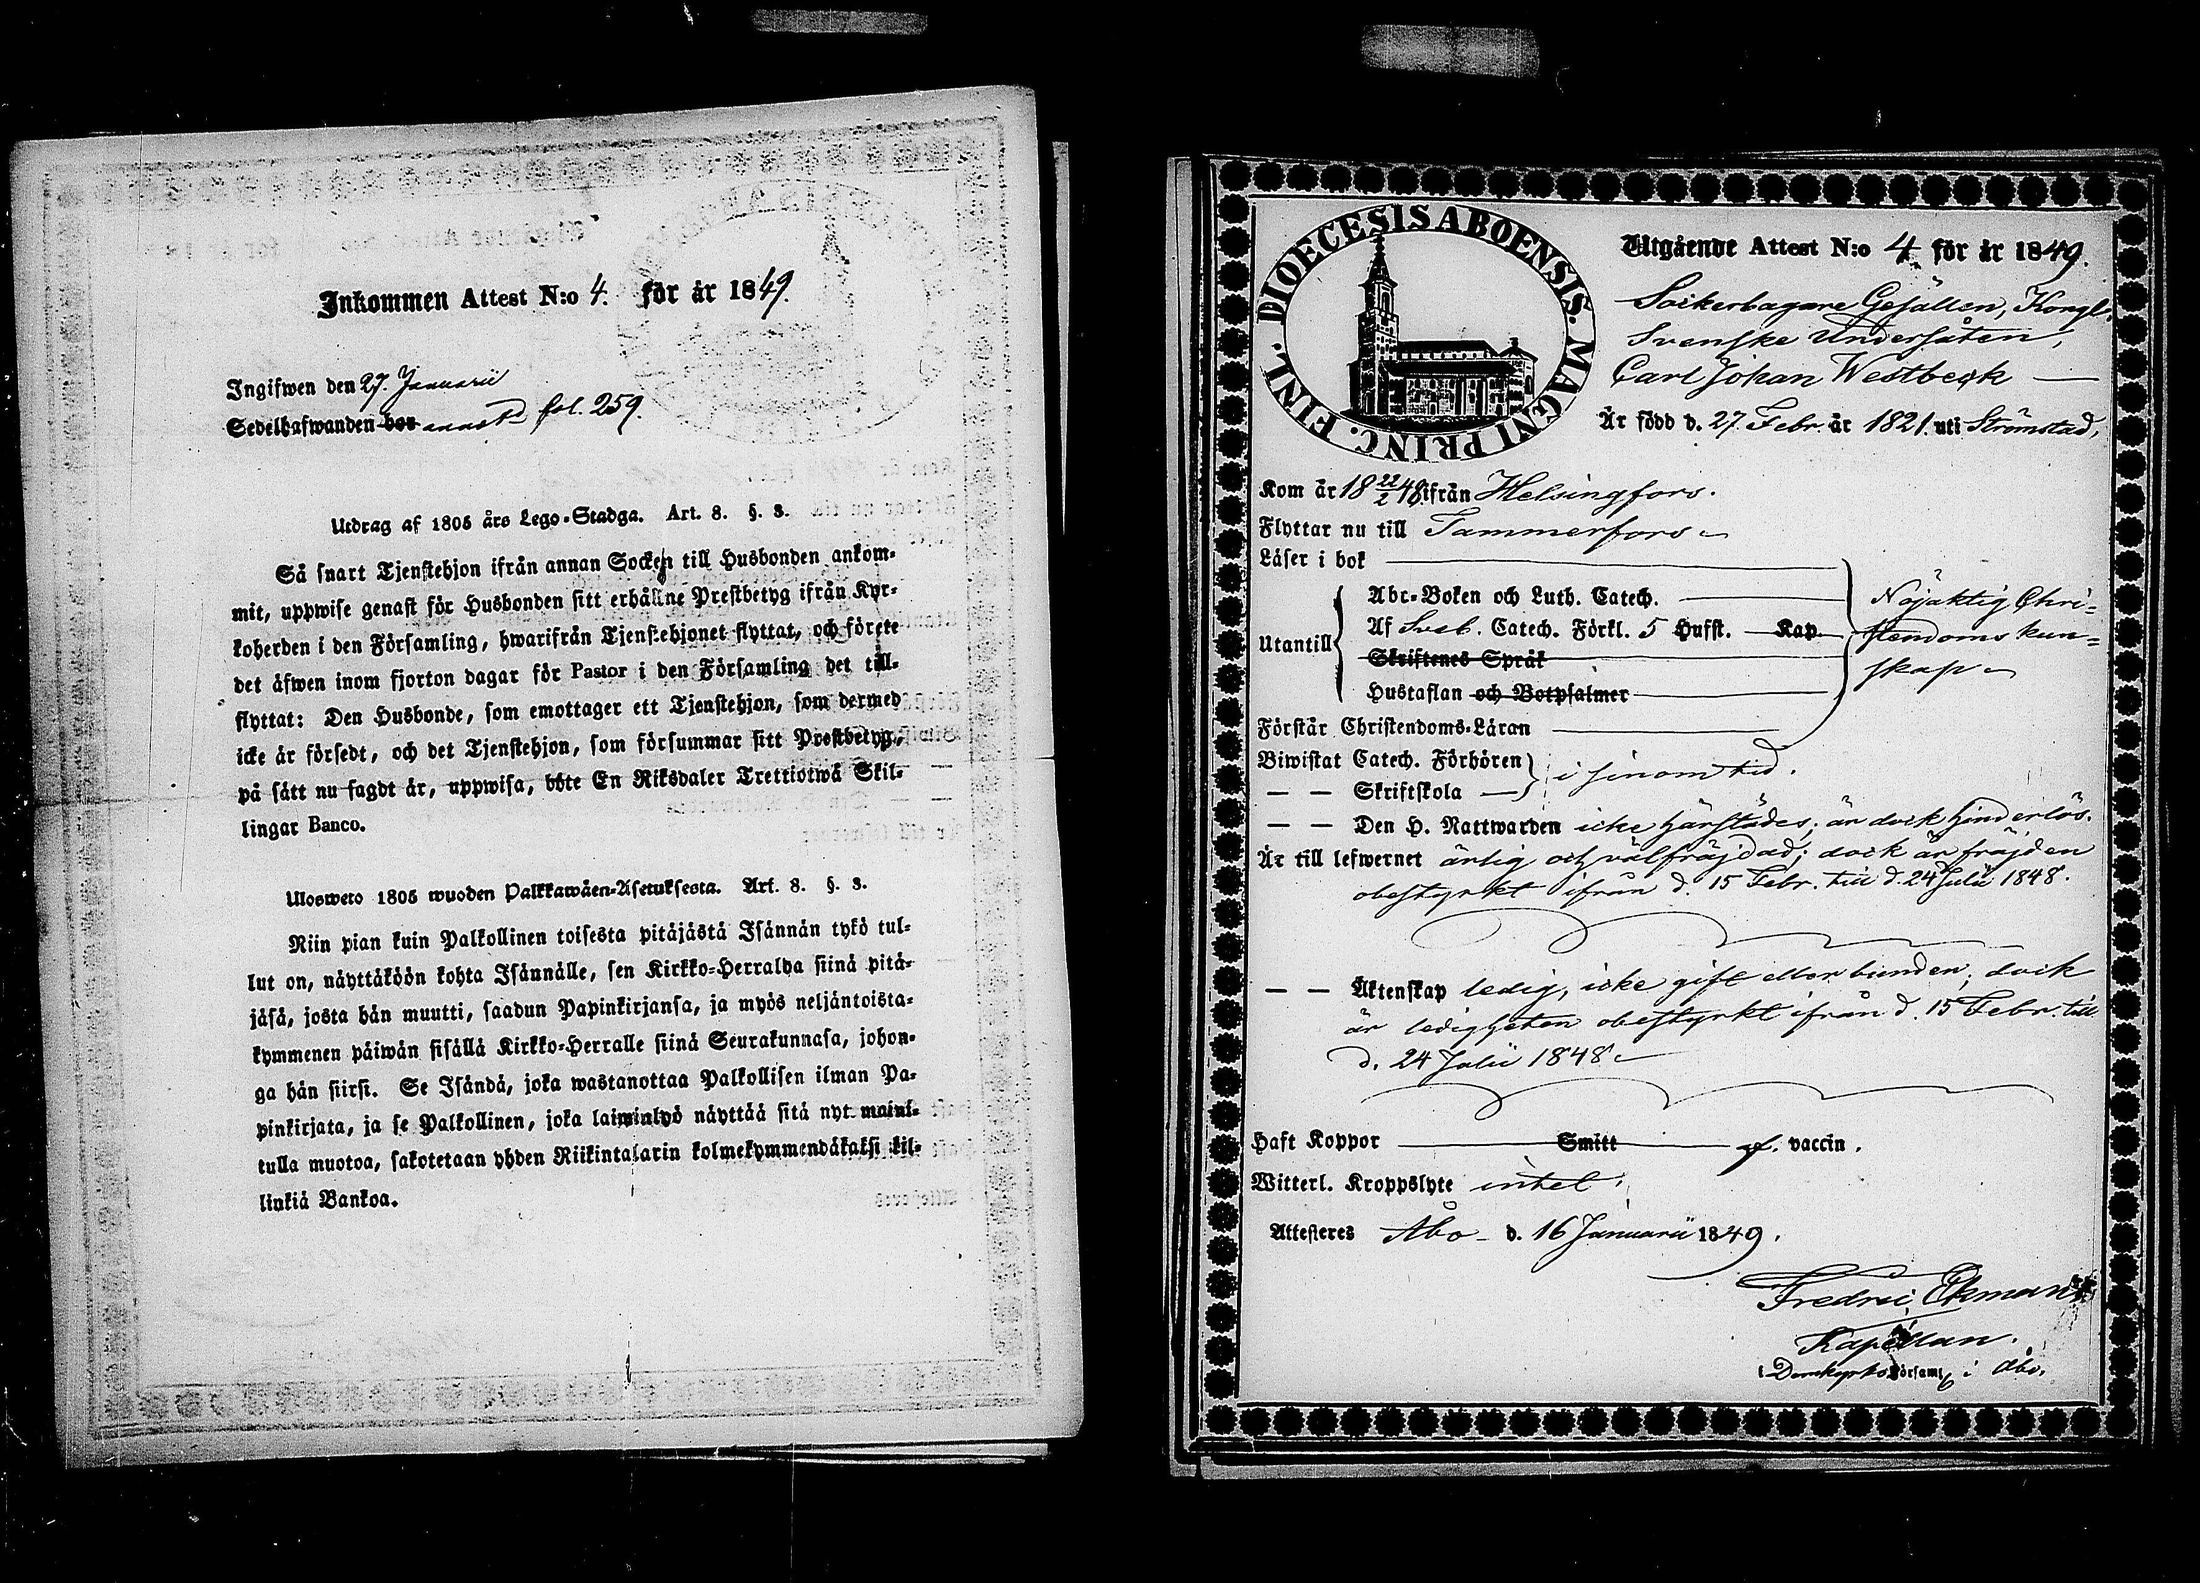 Inkommen Attest N:o 4. för år 1849.
Ingifwen den 27. Januarii
Sedelhafwanden bor fol. 259.
Utdrag af 1805 års Lego-Stadga. Art. 8. §. 3.
Så snart Tjenstehjon ifrån annan Socken till Husbonden ankom-
mit, uppwise genast för Husbonden sitt erhållne Prestbetyg ifrån Kyr-
koherden i den Församling, hwarifrån Tjenstehjonet flyttat, och förete
det äfwen inom fjorton dagar för Pastor i den Församling det till-
flyttat: Den Husbonde, som emottager ett Tjenstehjon, som dermed
icke är försedt, och det Tjenstehjon, som försummar sitt Prestbetyg,
på sätt nu sagdt är, uppwisa, böte En Riksdaler Trettiotwå Skil-
lingar Banco.
Ulosweto 1805 wuoden Palkkawäen-Asetuksesta. Art. 8. §. 3.
Niin pian kuin Palkollinen toisesta pitäjästä Isännän tykö tul-
lut on, näyttäköön kohta Isännälle, sen Kirkko-Herralda siinä pitä-
jäsä, josta hän muutti, saadun Papinkirjansa, ja myös neljäntoista-
kymmenen päiwän sisällä Kirkko-Herralle siinä Seurakunnasa, johon-
ga hän siirsi. Se Isändä, joka wastanottaa Palkollisen ilman Pa-
pinkirjata, ja se Palkollinen, joka laiminlyö näyttää sitä nyt maini-
tulla muotoa, sakotetaan yhden Riikintalarin kolmekymmendäkaksi kil-
linkiä Bankoa.
DIOECESIS ABOENSIS. MAGNI PRINC. FINL.
Utgående Attest N:o 4 för år 1849.
Sockerbagare Gesällen, Kongl.
Svenske Undersåten,
Carl Johan Westbeck
Är född d. 27. Febr. år 1821. uti Strömstad,
Kom år 18 22/2 48. ifrån Helsingfors.
Flyttar nu till Tammerfors
Läser i bok
Utantill
Abc-Boken och Luth. Catech.
Af Sveb. Catech. Förkl. 5 Hufst. Kap.
Skriftenes Språk
Hustaflan och Botpsalmer
Nöjaktig Chri-
stendoms kun-
skap
Förstår Christendoms-Läran
Biwistat Catech. Förhören
— — Skriftskola
i sinom tid.
— — Den H. Nattwarden icke härstädes; är dock hinderlös.
Är till lefwernet ärlig och välfräjdad; dock är fräjden
obestyrkt ifrån d. 15 Febr. till d. 24 Julii 1848.
— — Äktenskap ledig, icke gift eller bunden; dock
är ledigheten obestyrkt ifrån d. 15 Febr. till
d. 24 Julii 1848
Haft Koppor Smitt af. vaccin.
Witterl. Kroppslyte intet.
Attesteres Åbo d. 16 Januarii 1849.
Fredric Ekman
Kapellan.
i Domkyrko Församl i Åbo.